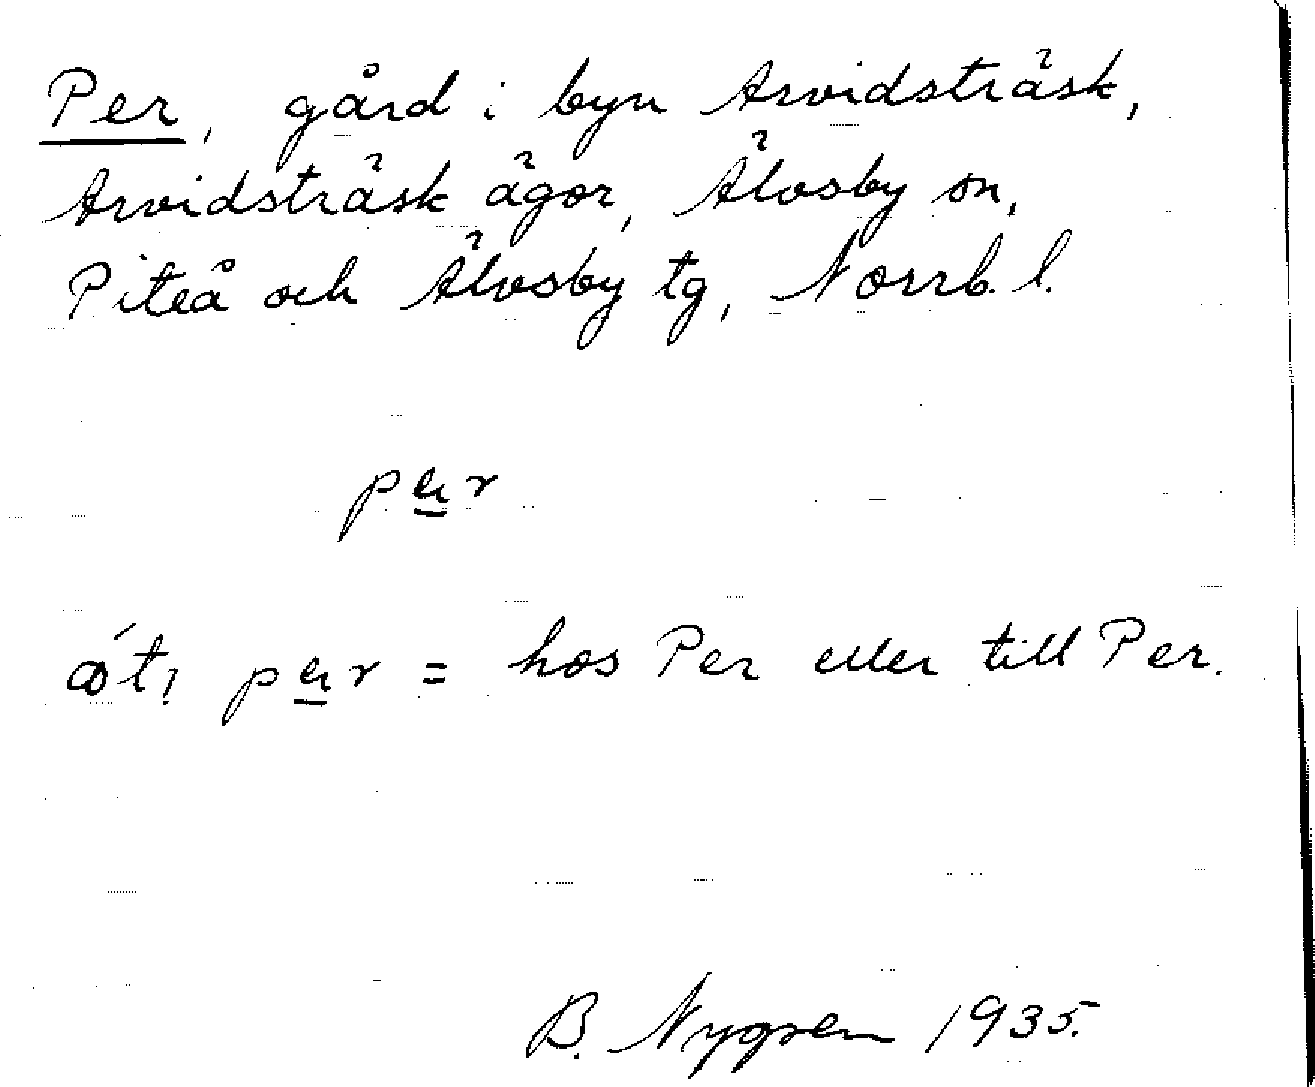 Per, gård i byn Arvidsträsk,
Arvidsträsk ägor, Älvsby sn,
Piteå och Älvsby tg, Norrb. l.
hos Per eller till Per.
B. Nygren 1935.